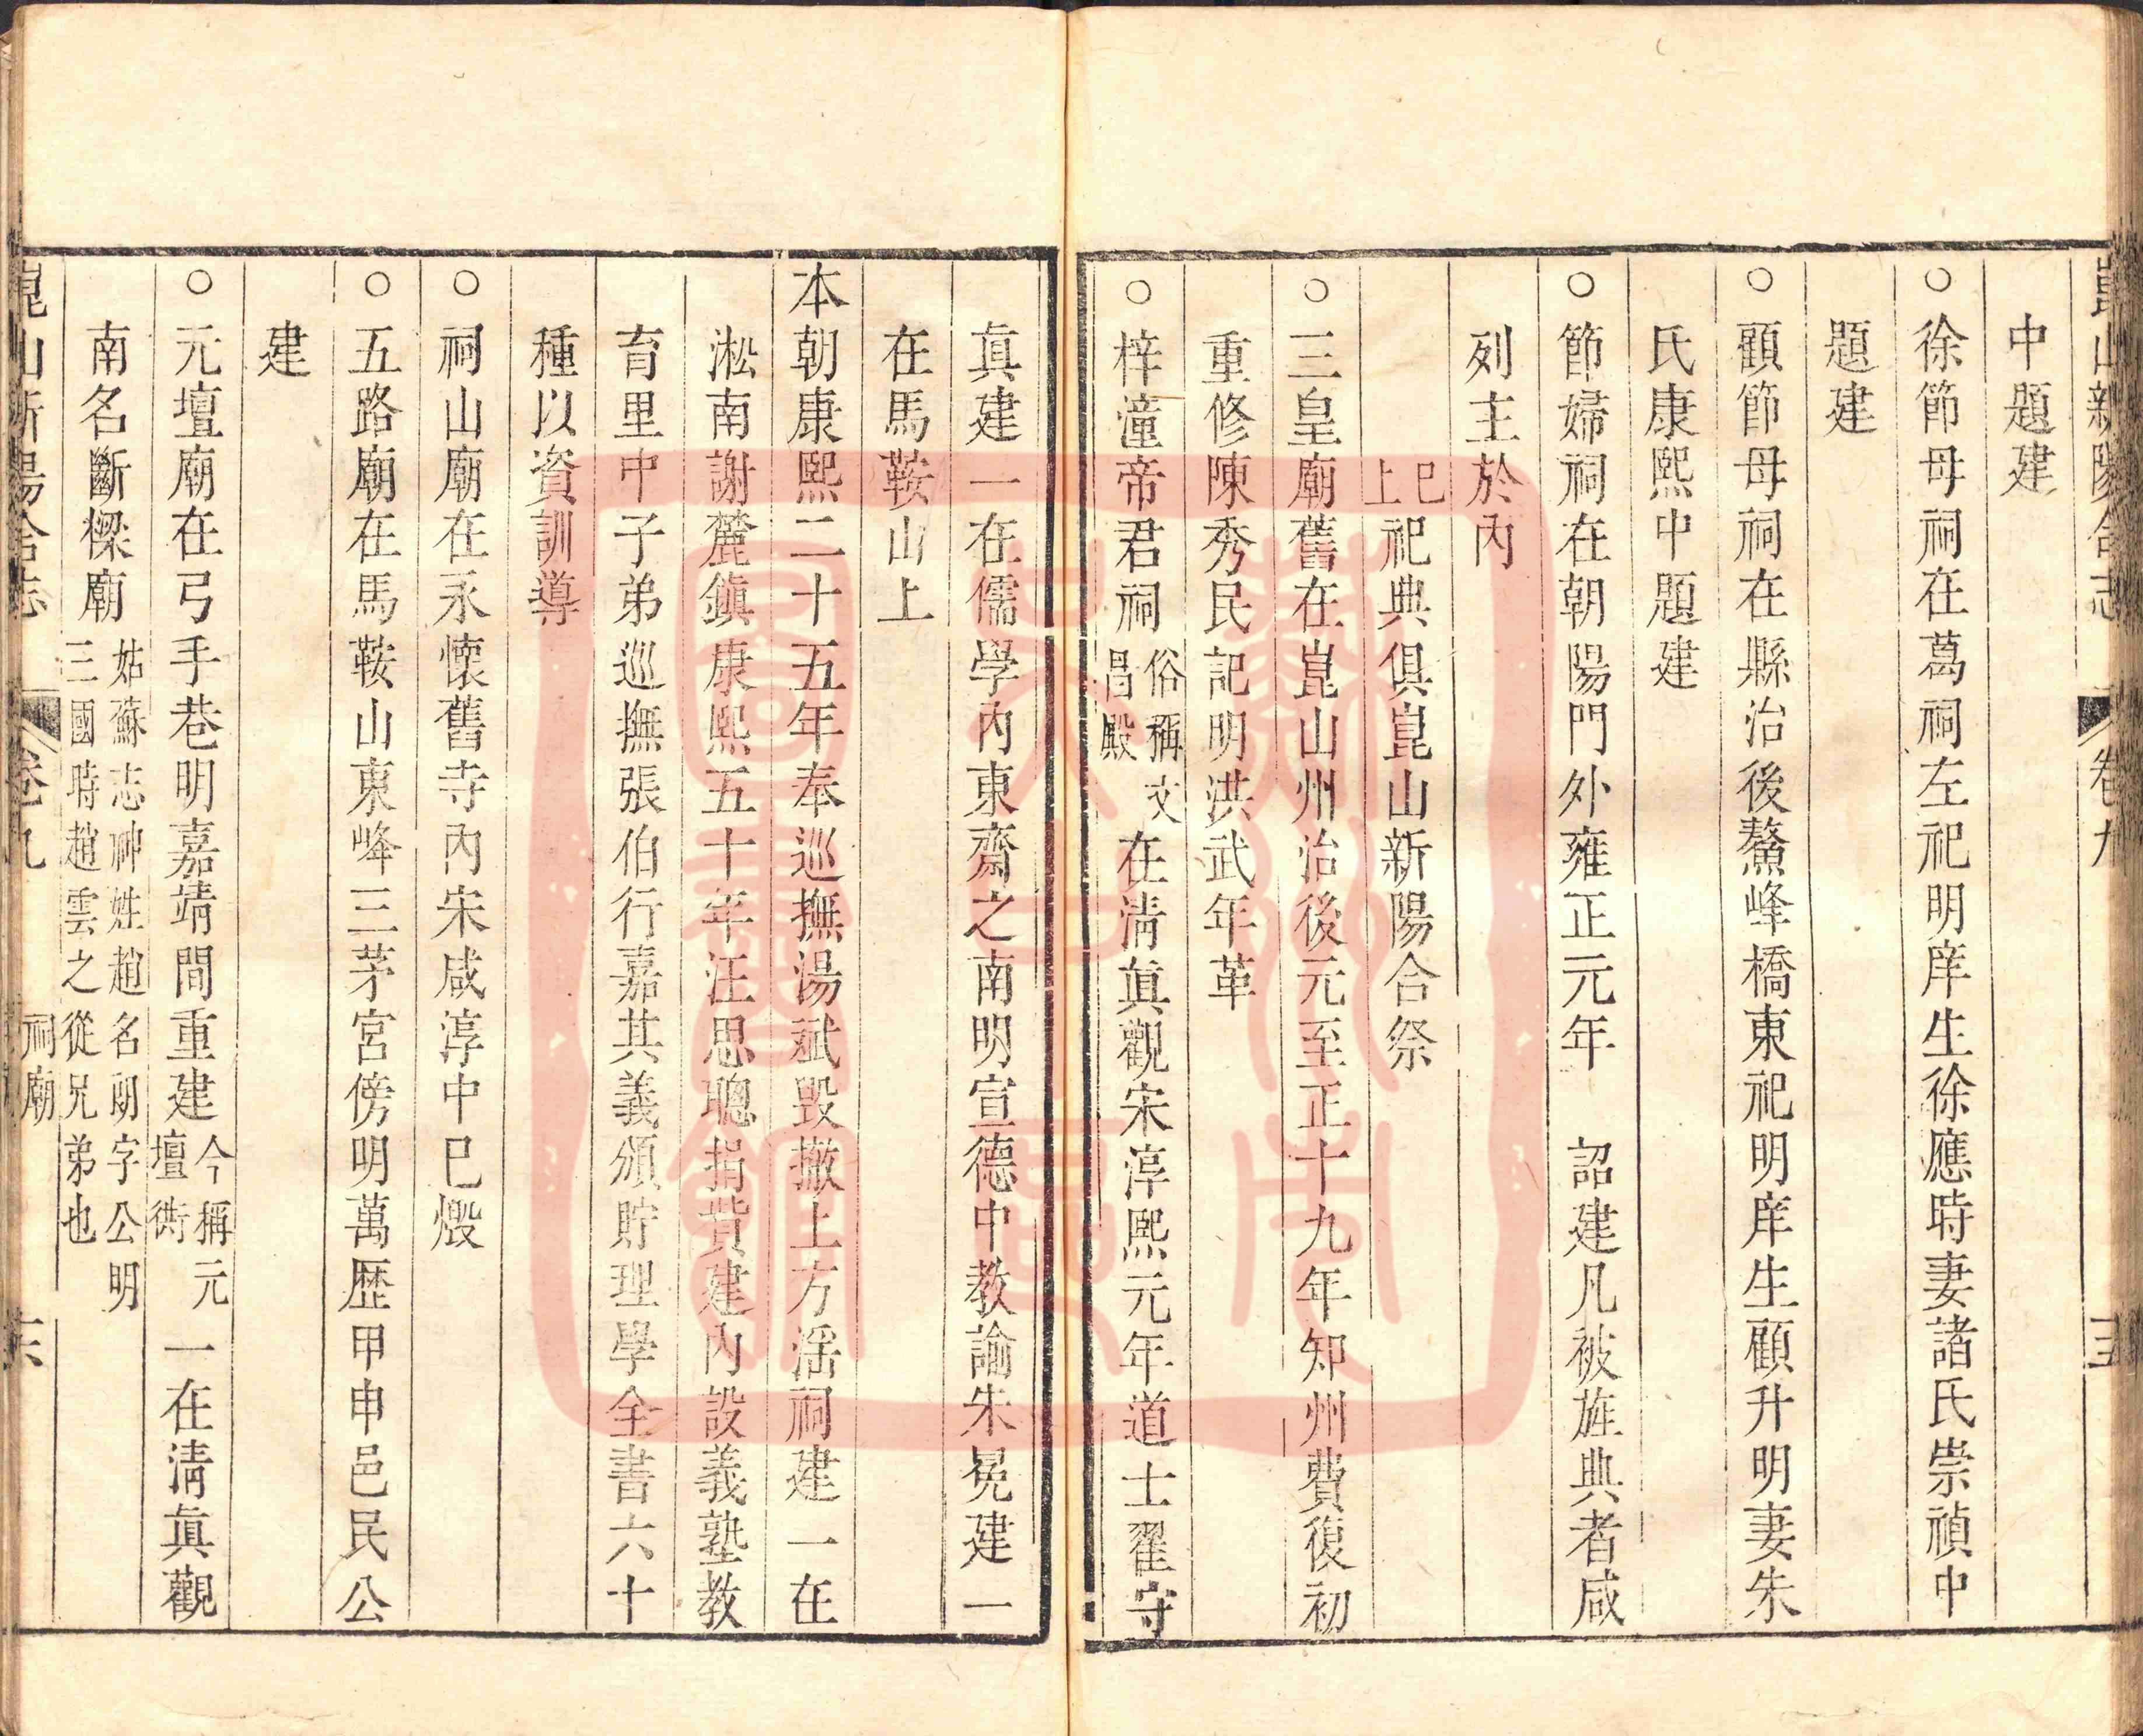 崑山新陽合志 卷九
中題建
○徐節母祠在葛祠左祀明庠生徐應時妻諸氏崇禎中
題建
○顧節母祠在縣治後鰲峰橋東祀明庠生顧升明妻朱
氏康熙中題建
○節婦祠在朝陽門外雍正元年 詔建凡被旌典者咸
列主於內
巳上祀典俱崑山新陽合祭
○三皇廟舊在崑山州治後元至正十九年知州費復初
重修陳秀民記明洪武年革
○梓潼帝君祠俗稱文昌殿在清眞觀宋淳熙元年道士翟守
眞建一在儒學內東齋之南明宣德中教諭朱冕建一
在馬鞍山上
本朝康熙二十五年奉巡撫湯斌毀撤上方淫祠建一在
淞南謝麓鎮康熙五十年汪思聰捐貲建內設義塾教
育里中子弟巡撫張伯行嘉其義頒貯理學全書六十
種以資訓導
○祠山廟在永懷舊寺內宋咸淳中巳燬
○五路廟在馬鞍山東峰三茅宮傍明萬歷甲申邑民公
建
○元壇廟在弓手巷明嘉靖間重建今稱元壇衖一在清眞觀
南名斷樑廟姑蘇志神姓趙名朗字公明三國時趙雲之從兄弟也
崑山新陽合志 卷九 祠廟